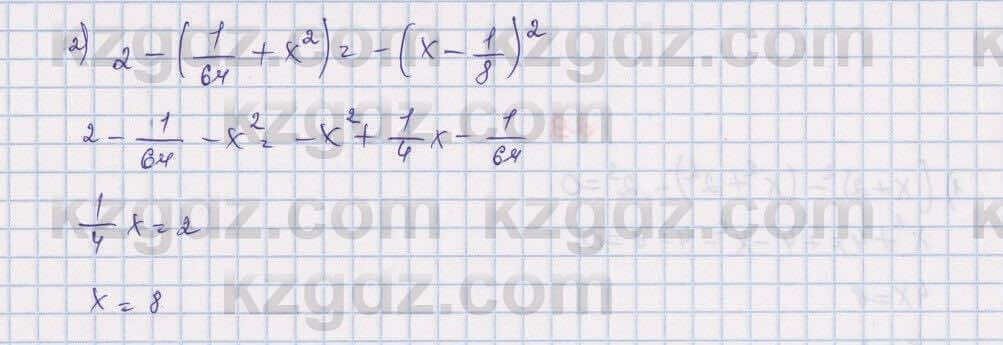 2) 2 - (1/64 + x²) = -(x - 1/8)²
2 - 1/64 - x² = -x² + 1/4 x - 1/64
1/4 x = 2
x = 8
kzgdz.com
kzgdz.com
kzgdz.com
kzgdz.com
kzgdz.com
kzgdz.com
kzgdz.com